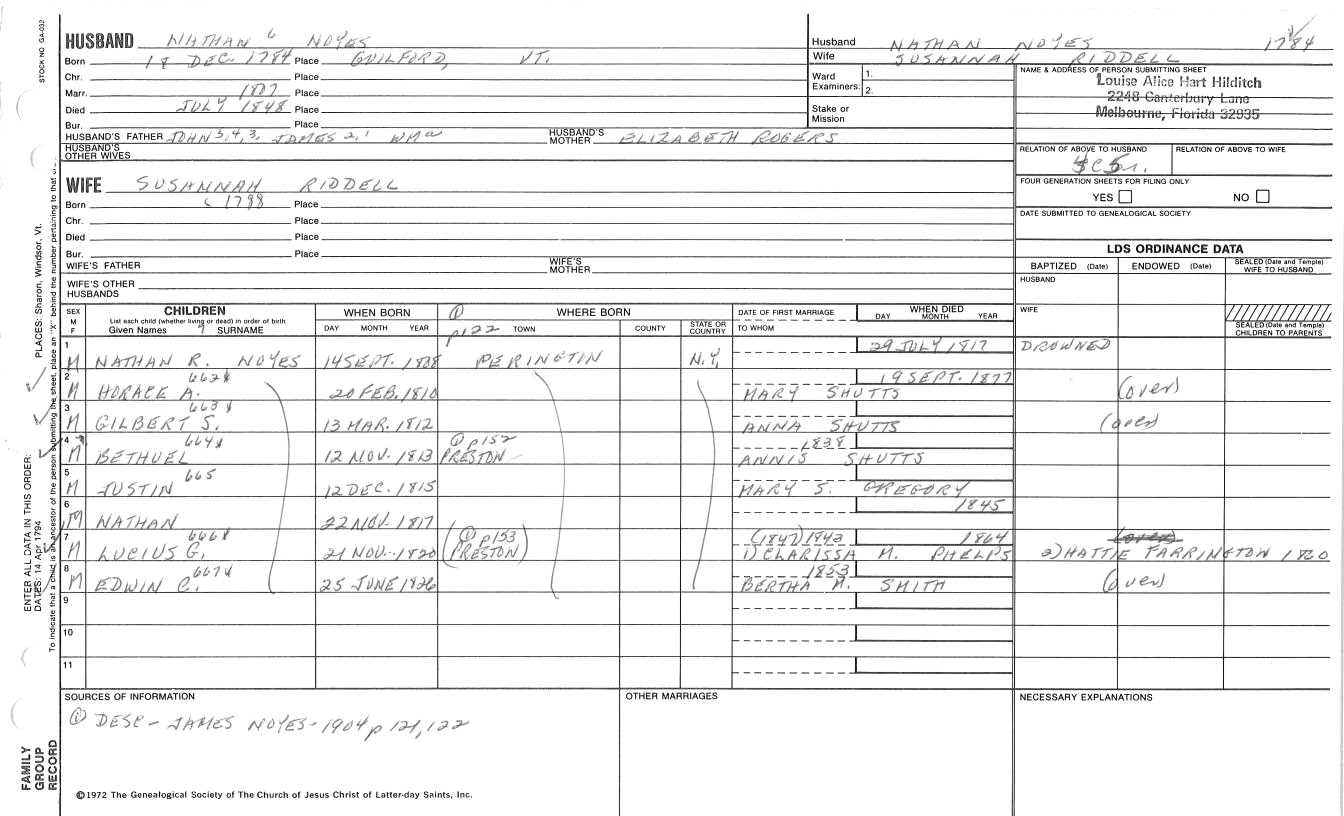 STOCK NO GA-032
HUSBAND NATHAN 6 NOYES
Born 18 DEC. 1784 Place GUILFORD, VT.
Chr. Place
Marr. 1807 Place
Died JULY 1848 Place
Bur. Place
HUSBAND'S FATHER JOHN 5,4,3, JAMES 2,1 WM a HUSBAND'S MOTHER ELIZABETH ROGERS
HUSBAND'S OTHER WIVES
Husband NATHAN NOYES 1784
Wife SUSANNAH RIDDELL
Ward Examiners: 1. 2.
Stake or Mission
NAME & ADDRESS OF PERSON SUBMITTING SHEET
Louise Alice Hart Hilditch
2248 Canterbury Lane
Melbourne, Florida 32935
RELATION OF ABOVE TO HUSBAND RELATION OF ABOVE TO WIFE
FOUR GENERATION SHEETS FOR FILING ONLY
YES NO
DATE SUBMITTED TO GENEALOGICAL SOCIETY
WIFE SUSANNAH RIDDELL
Born c 1788 Place
Chr. Place
Died Place
Bur. Place
WIFE'S FATHER WIFE'S MOTHER
WIFE'S OTHER HUSBANDS
LDS ORDINANCE DATA
BAPTIZED (Date) ENDOWED (Date) SEALED (Date and Temple) WIFE TO HUSBAND
HUSBAND
WIFE
SEALED (Date and Temple) CHILDREN TO PARENTS
SEX M F
CHILDREN
List each child (whether living or dead) in order of birth
Given Names 7 SURNAME
WHEN BORN
DAY MONTH YEAR
① p122
WHERE BORN
TOWN COUNTY STATE OR COUNTRY
DATE OF FIRST MARRIAGE
TO WHOM
WHEN DIED
DAY MONTH YEAR
1 M NATHAN R. NOYES 14 SEPT. 1808 PERINGTIN N.Y. 29 JULY 1817 DROWNED
2 M HORACE A. 662 20 FEB. 1810 MARY SHUTTS 19 SEPT. 1877 (over)
3 M GILBERT S. 663 13 MAR. 1812 ANNA SHUTTS (over)
4 M BETHUEL 664 12 NOV. 1813 ① p152 PRESTON 1838 ANNIS SHUTTS
5 M JUSTIN 665 12 DEC. 1815 MARY S. GREGORY
6 M NATHAN 22 NOV. 1817 1845
7 M LUCIUS G. 666 21 NOV. 1820 (① p153 PRESTON) (1847) 1842 1) CLARISSA M. PHELPS 1864 (over) 2) HATTIE FARRINGTON 1820
8 M EDWIN C. 667 25 JUNE 1826 1853 BERTHA M. SMITH (over)
9
10
11
SOURCES OF INFORMATION
① DESC - JAMES NOYES - 1904 p 121, 122
OTHER MARRIAGES
NECESSARY EXPLANATIONS
©1972 The Genealogical Society of The Church of Jesus Christ of Latter-day Saints, Inc.
FAMILY
GROUP
RECORD
ENTER ALL DATA IN THIS ORDER:
PLACES: Sharon, Windsor, Vt.
DATES: 14 Apr 1794
To indicate that a child is an ancestor of the person submitting the sheet, place an "X" behind the number pertaining to that